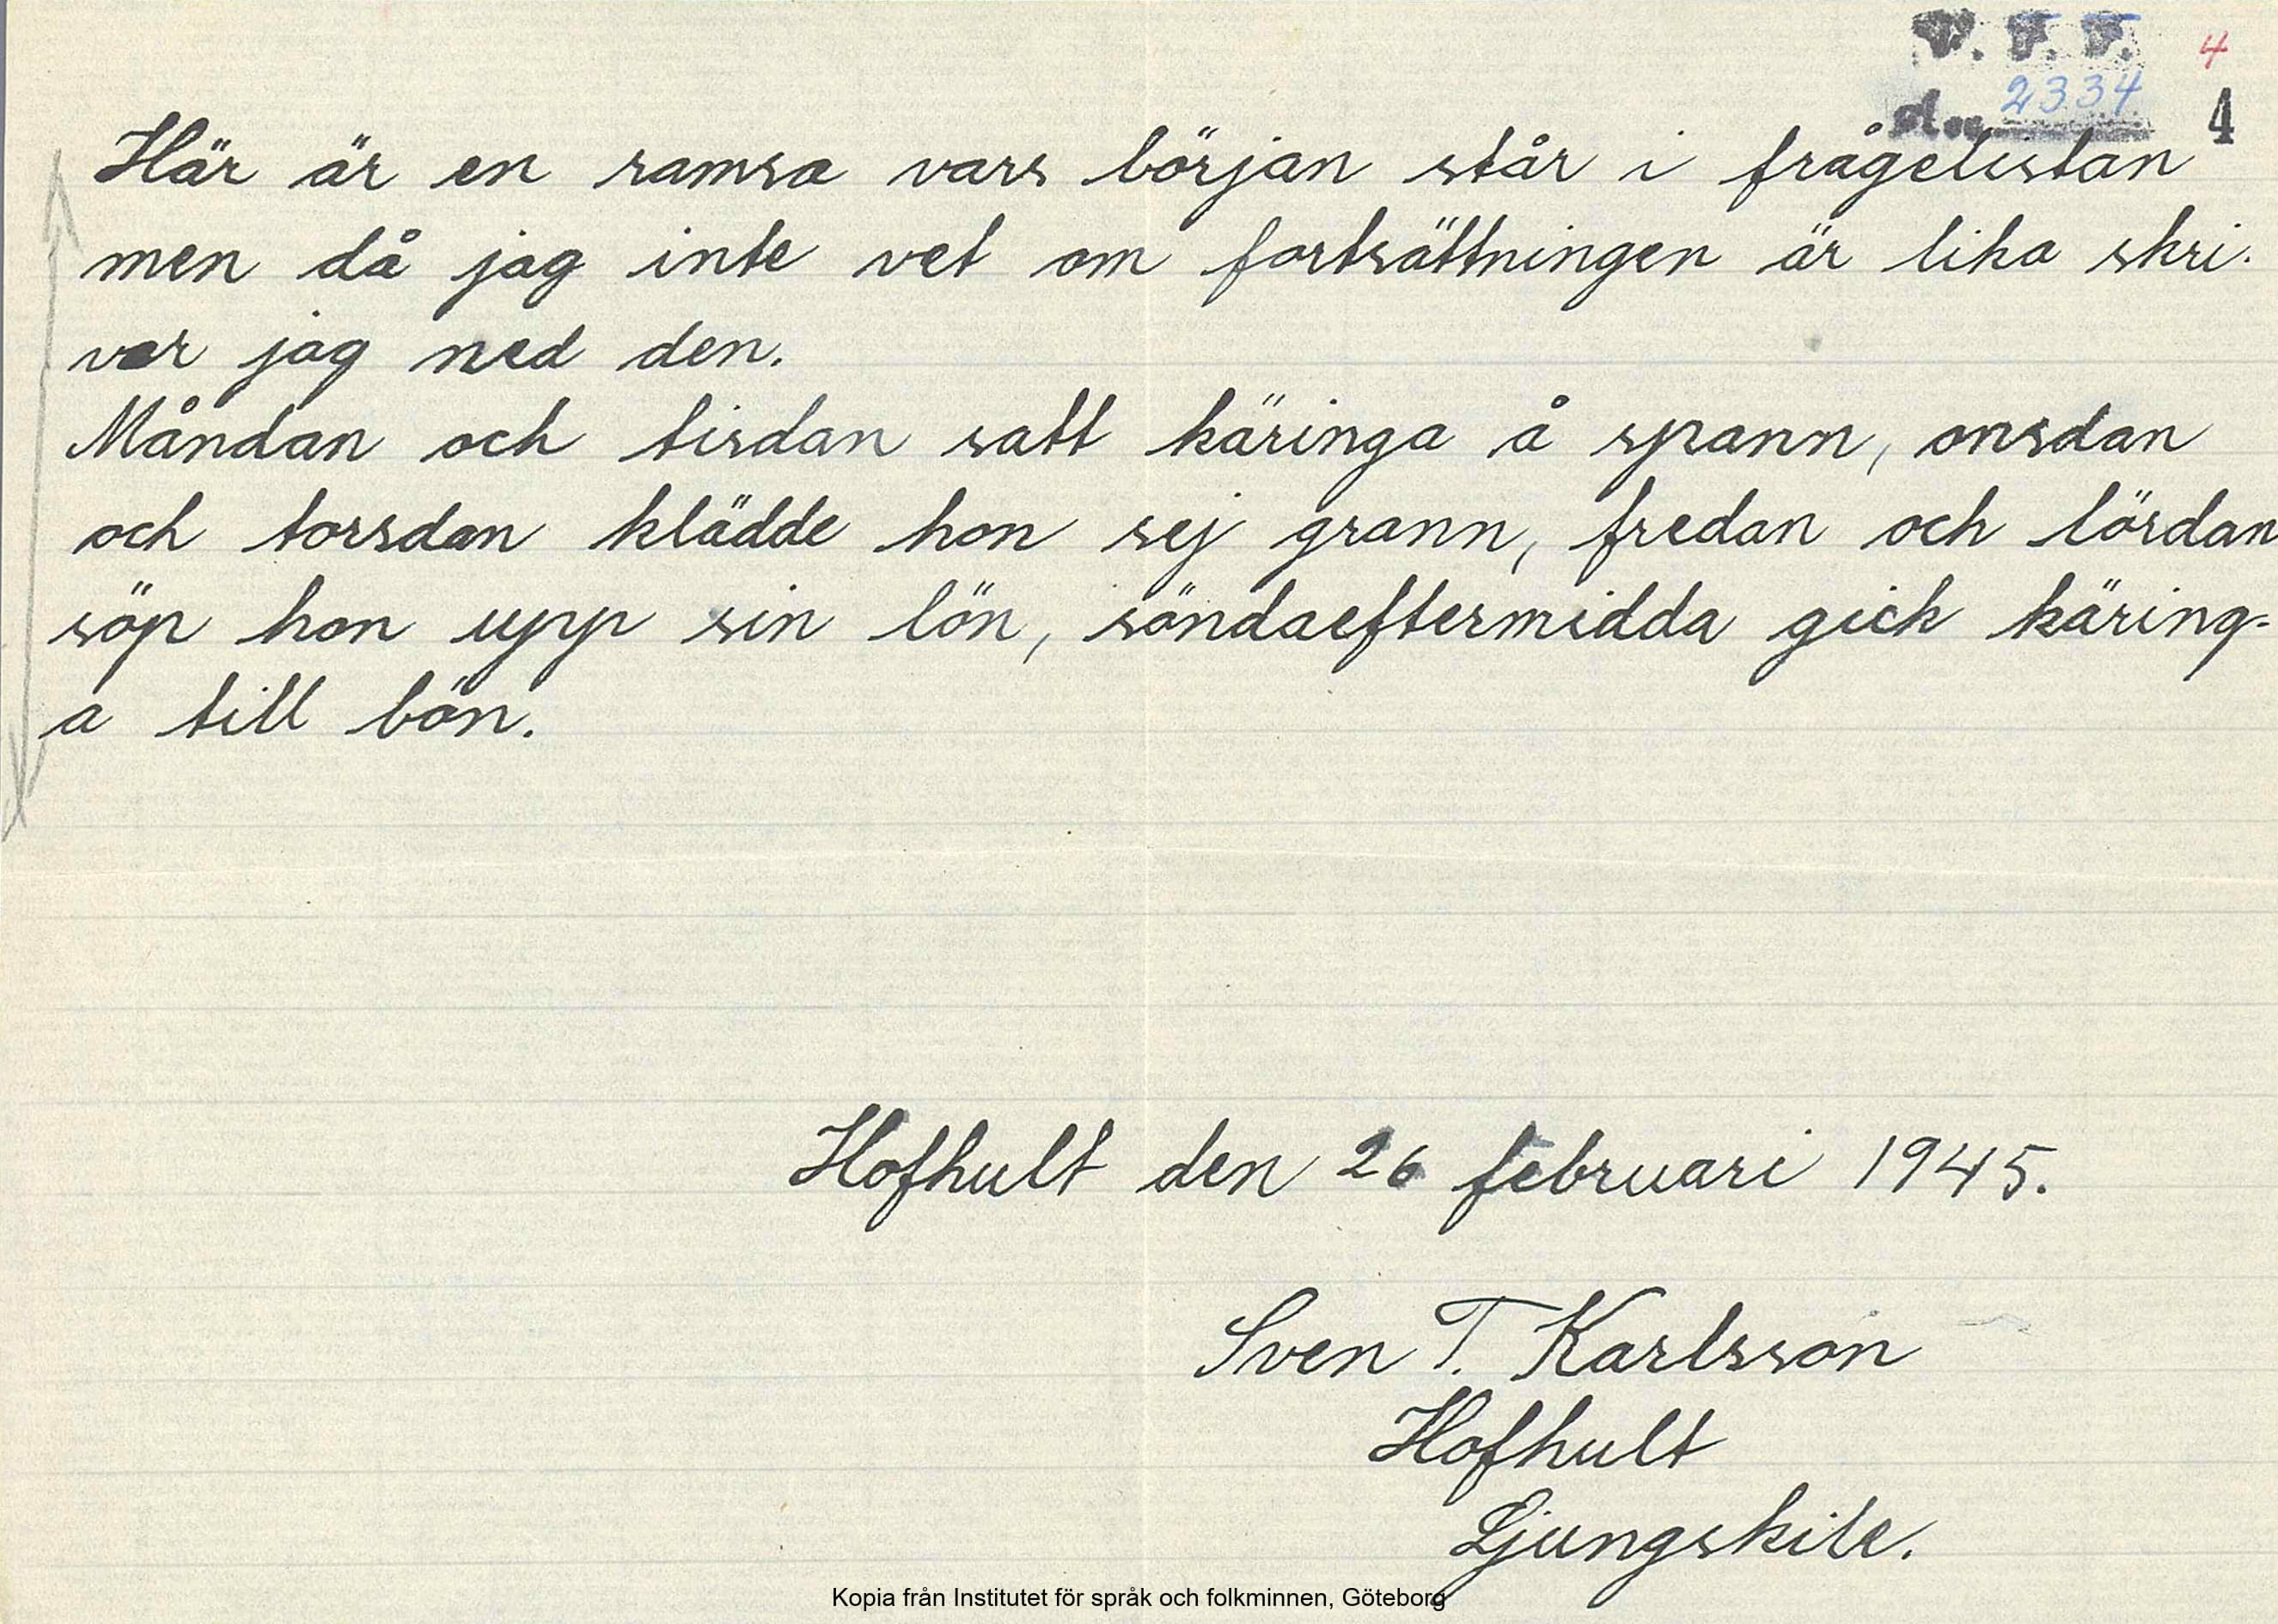 V. F. F. 4
d... 2334 4
Här är en ramsa vars början står i frågelistan
men då jag inte vet om fortsättningen är lika skri-
ver jag ned den.
Måndan och tisdan satt käringa å spann, onsdan
och torsdan klädde hon sej grann, fredan och lördan
söp hon upp sin lön, söndaeftermidda gick käring-
a till bön.
Hofhult den 26 februari 1945.
Sven T. Karlsson
Hofhult
Ljungskile.
Kopia från Institutet för språk och folkminnen, Göteborg